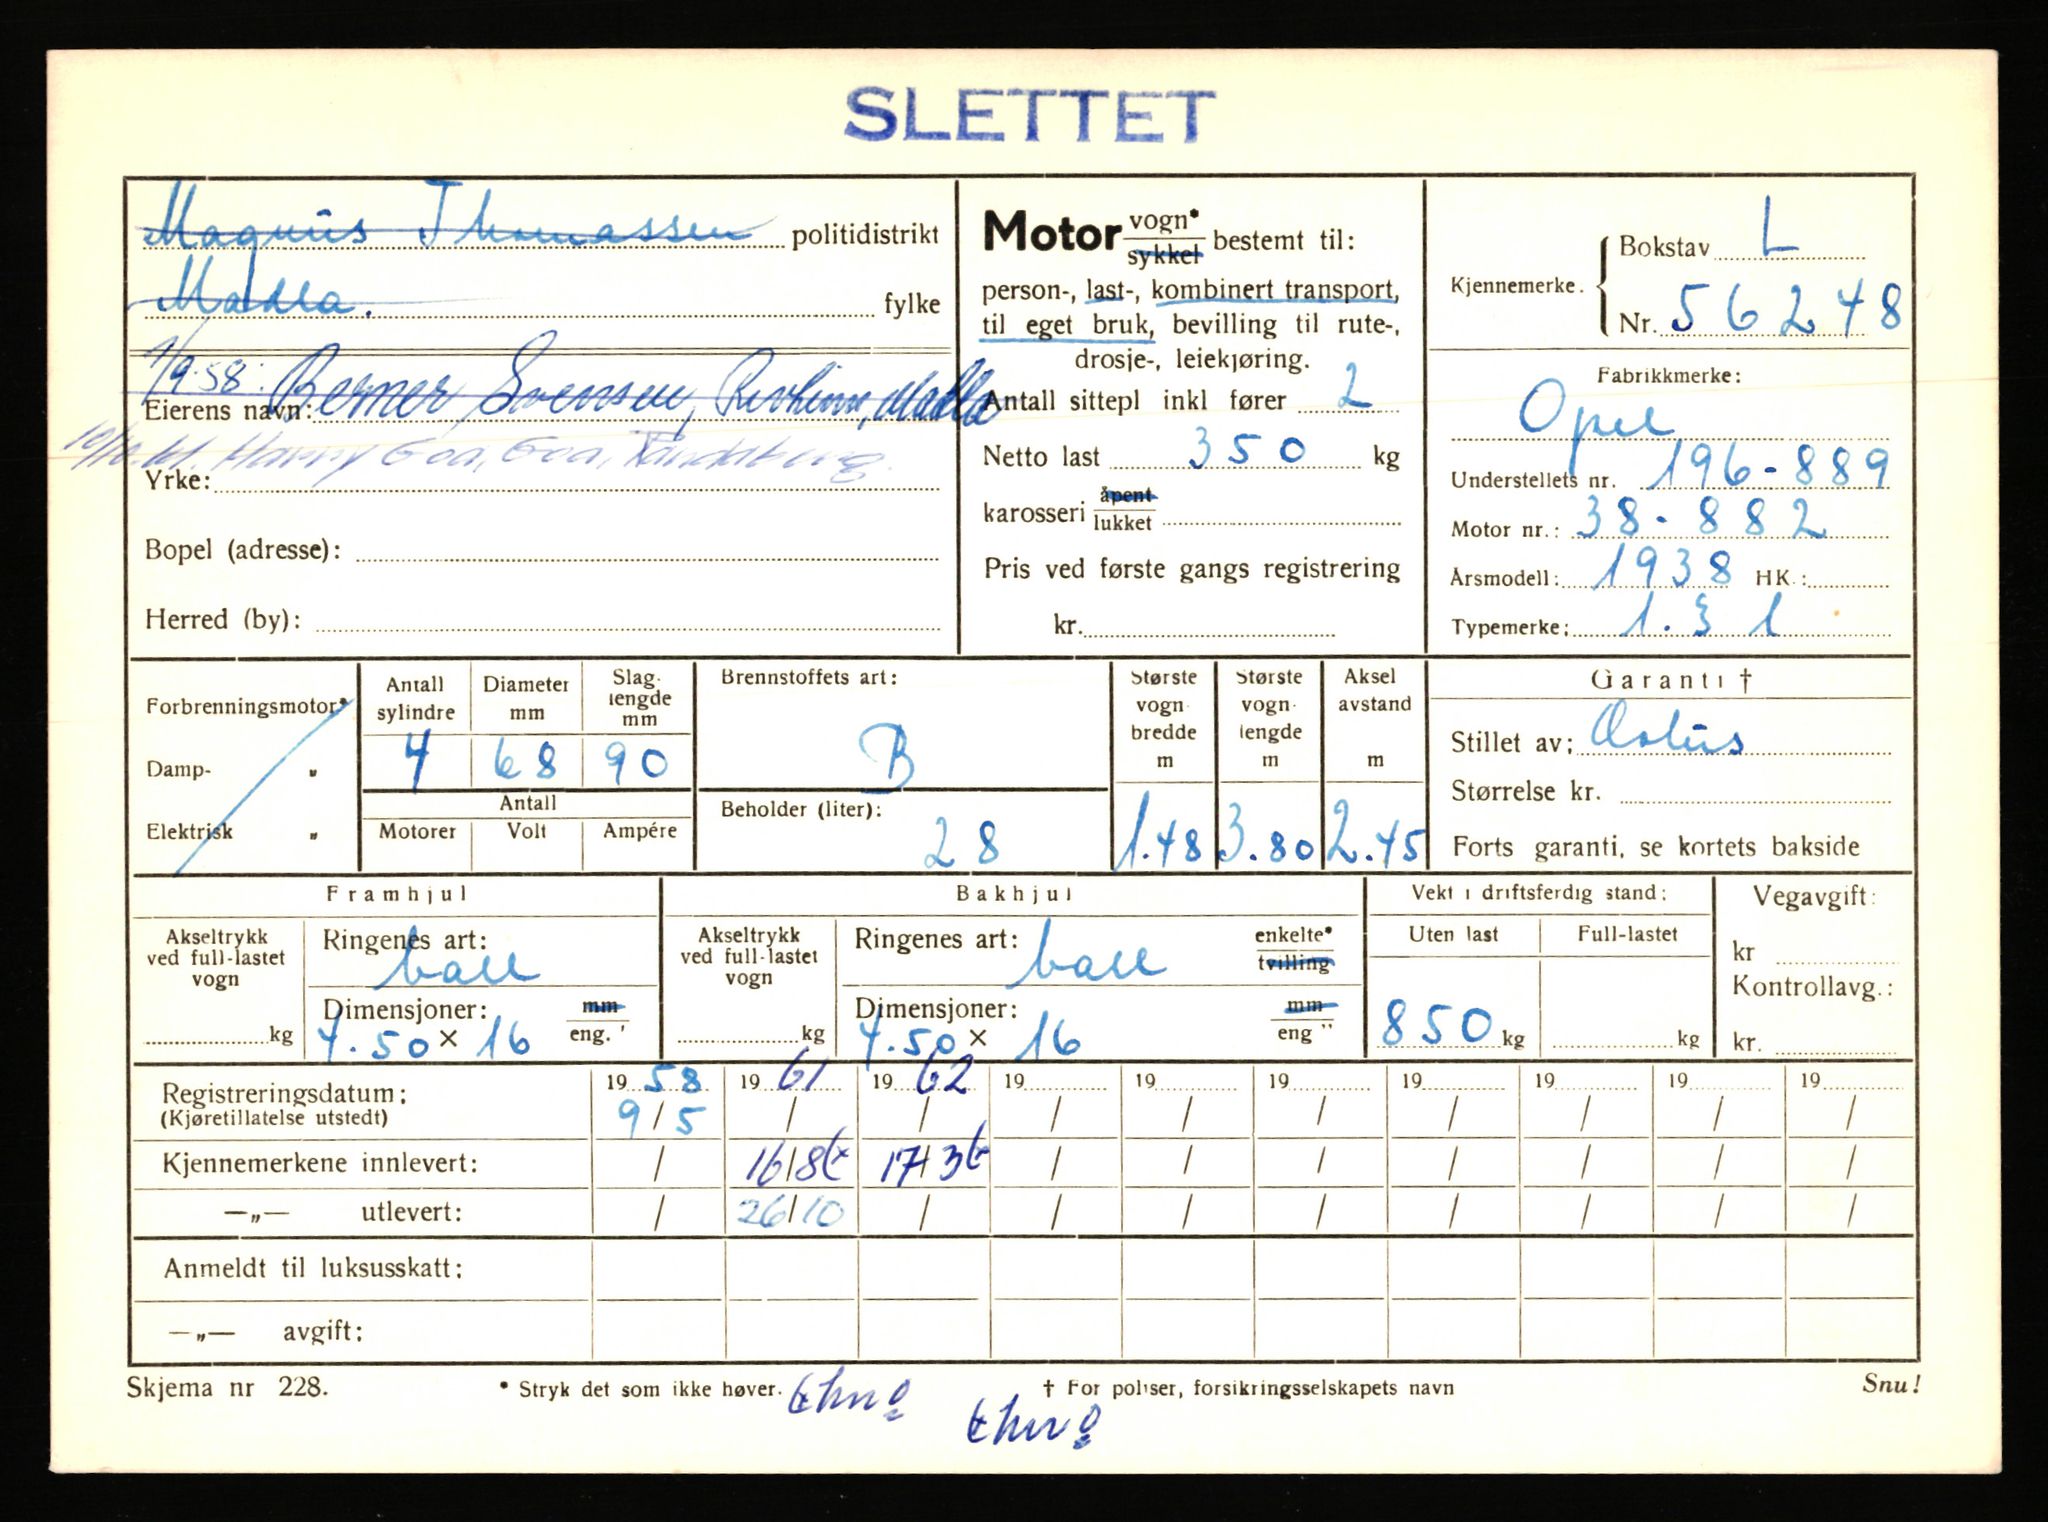 SLETTET
Magnus Thomassen politidistrikt
Madla. fylke
1/9-58: Berner Svensen, Madla
Eierens navn:
Harry Goa, Goa, Randaberg.
Yrke:
Bopel (adresse):
Herred (by):
Motor vogn* / sykkel bestemt til:
person-, last-, kombinert transport,
til eget bruk, bevilling til rute-,
drosje-, leiekjøring.
Antall sittepl inkl fører 2
Netto last 350 kg
karosseri åpent / lukket
Pris ved første gangs registrering
kr.
Kjennemerke. Bokstav L
Nr. 56248
Fabrikkmerke:
Opel
Understellets nr. 196-889
Motor nr.: 38-882
Årsmodell: 1938 HK.:
Typemerke: 1.3 l
Forbrenningsmotor*
Damp- „
Elektrisk „
Antall sylindre Diameter mm Slaglengde mm
4 68 90
Antall
Motorer Volt Ampére
Brennstoffets art:
B
Beholder (liter):
28
Største vogn bredde m
1.48
Største vogn lengde m
3.80
Aksel avstand m
2.45
Garanti †
Stillet av:
Størrelse kr.
Forts garanti, se kortets bakside
Framhjul
Akseltrykk ved full-lastet vogn
kg
Ringenes art:
ball
Dimensjoner: mm / eng."
4.50 × 16
Bakhjul
Akseltrykk ved full-lastet vogn
kg
Ringenes art: enkelte* / tvilling
ball
Dimensjoner: mm / eng"
4.50 × 16
Vekt i driftsferdig stand:
Uten last Full-lastet
850 kg kg
Vegavgift:
kr
Kontrollavg.:
kr.
Registreringsdatum: 19 58 19 61 19 62 19 19 19 19 19 19 19
(Kjøretillatelse utstedt) 9/5 / / / / / / / / /
Kjennemerkene innlevert: / 16/8 17/3 / / / / / / /
—„— utlevert: / 26/10 / / / / / / / /
Anmeldt til luksusskatt:
—„— avgift:
Skjema nr 228. * Stryk det som ikke høver. † For poliser, forsikringsselskapets navn Snu!